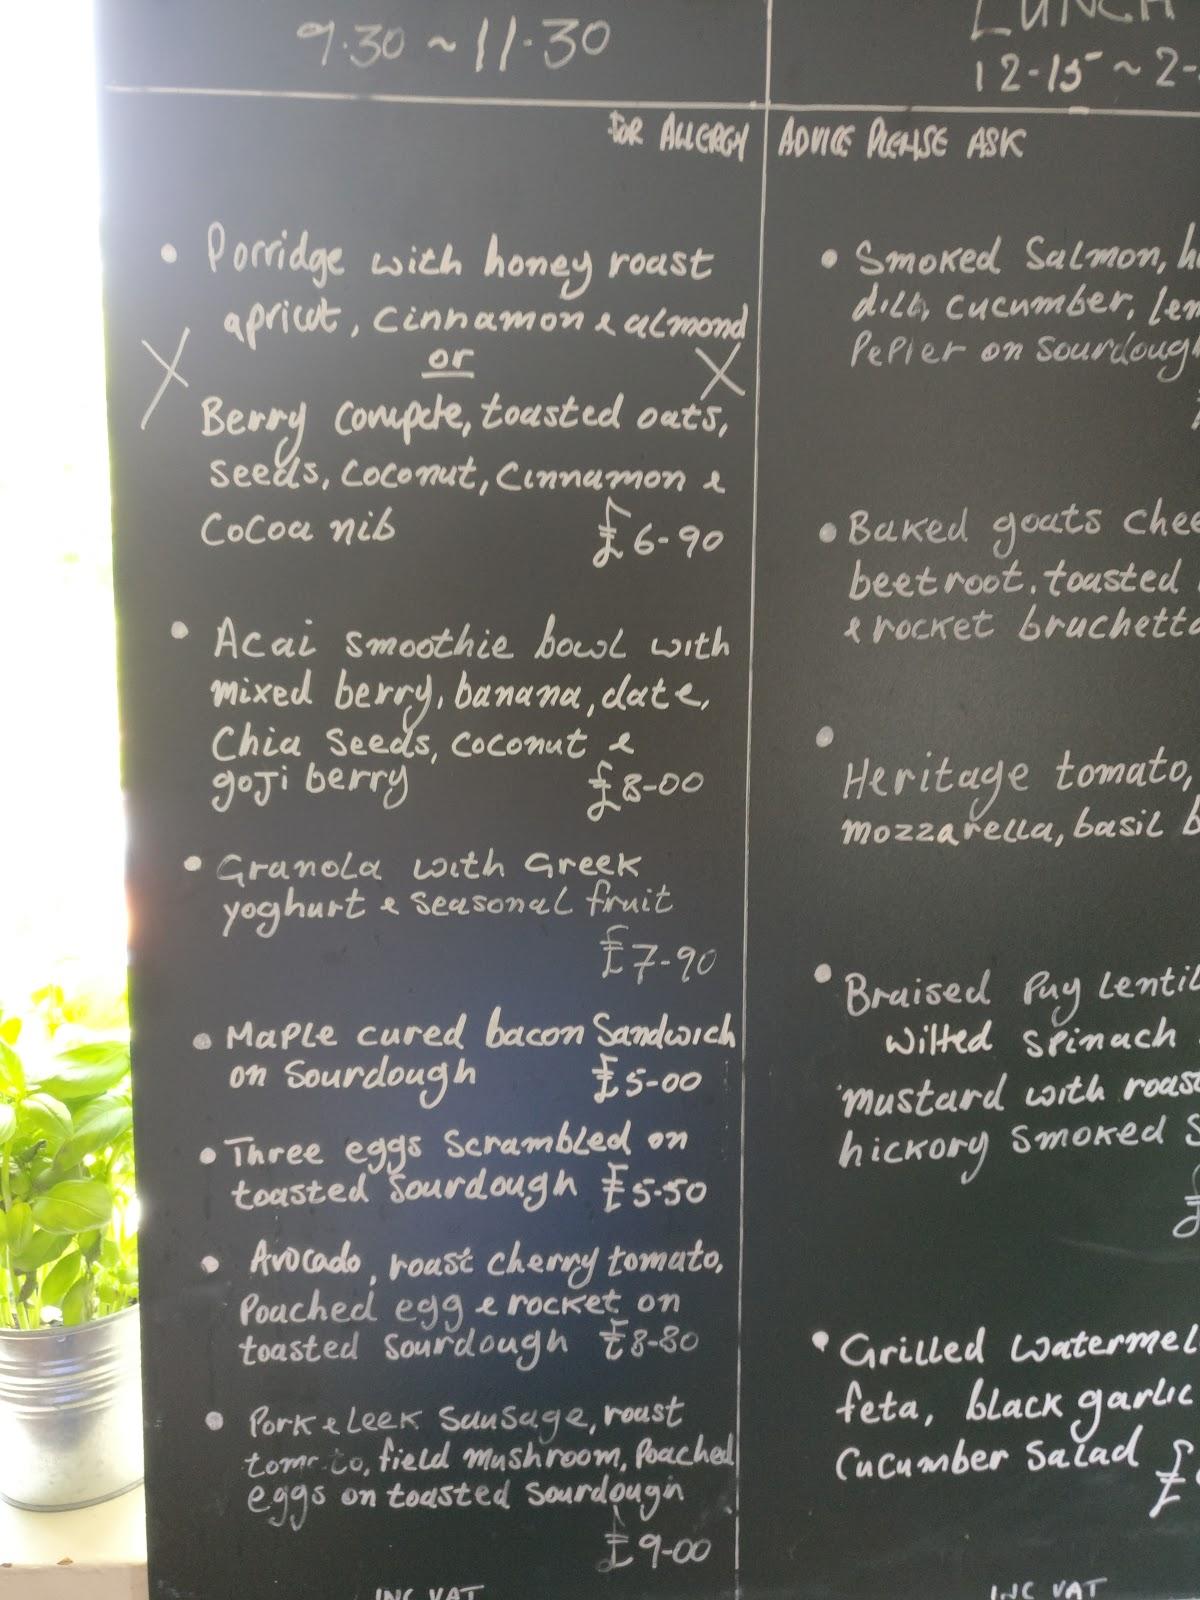 9.30 ~ 11.30
FOR ALLERGY
• Porridge with honey roast
apricot, cinnamon & almond
X or X
Berry compote, toasted oats,
seeds, coconut, cinnamon &
cocoa nib £6-90
• Acai smoothie bowl with
mixed berry, banana, date,
Chia seeds, coconut &
goji berry £8-00
• Granola with Greek
yoghurt & seasonal fruit
£7-90
• Maple cured bacon Sandwich
on sourdough £5-00
• Three eggs scrambled on
toasted sourdough £5-50
• Avocado, roast cherry tomato,
Poached egg & rocket on
toasted sourdough £8-80
• Pork & Leek sausage, roast
tomato, field mushroom, Poached
eggs on toasted sourdough
£9-00
INC VAT
LUNCH
12-15 ~ 2-
ADVICE PLEASE ASK
• Smoked Salmon,
dill, cucumber,
Pepper on sourdough
• Baked goats
beetroot, toasted
& rocket
• Heritage tomato,
mozzarella, basil
• Braised Puy
wilted spinach
mustard with
hickory smoked
• Grilled
feta, black garlic
cucumber salad £
INC VAT